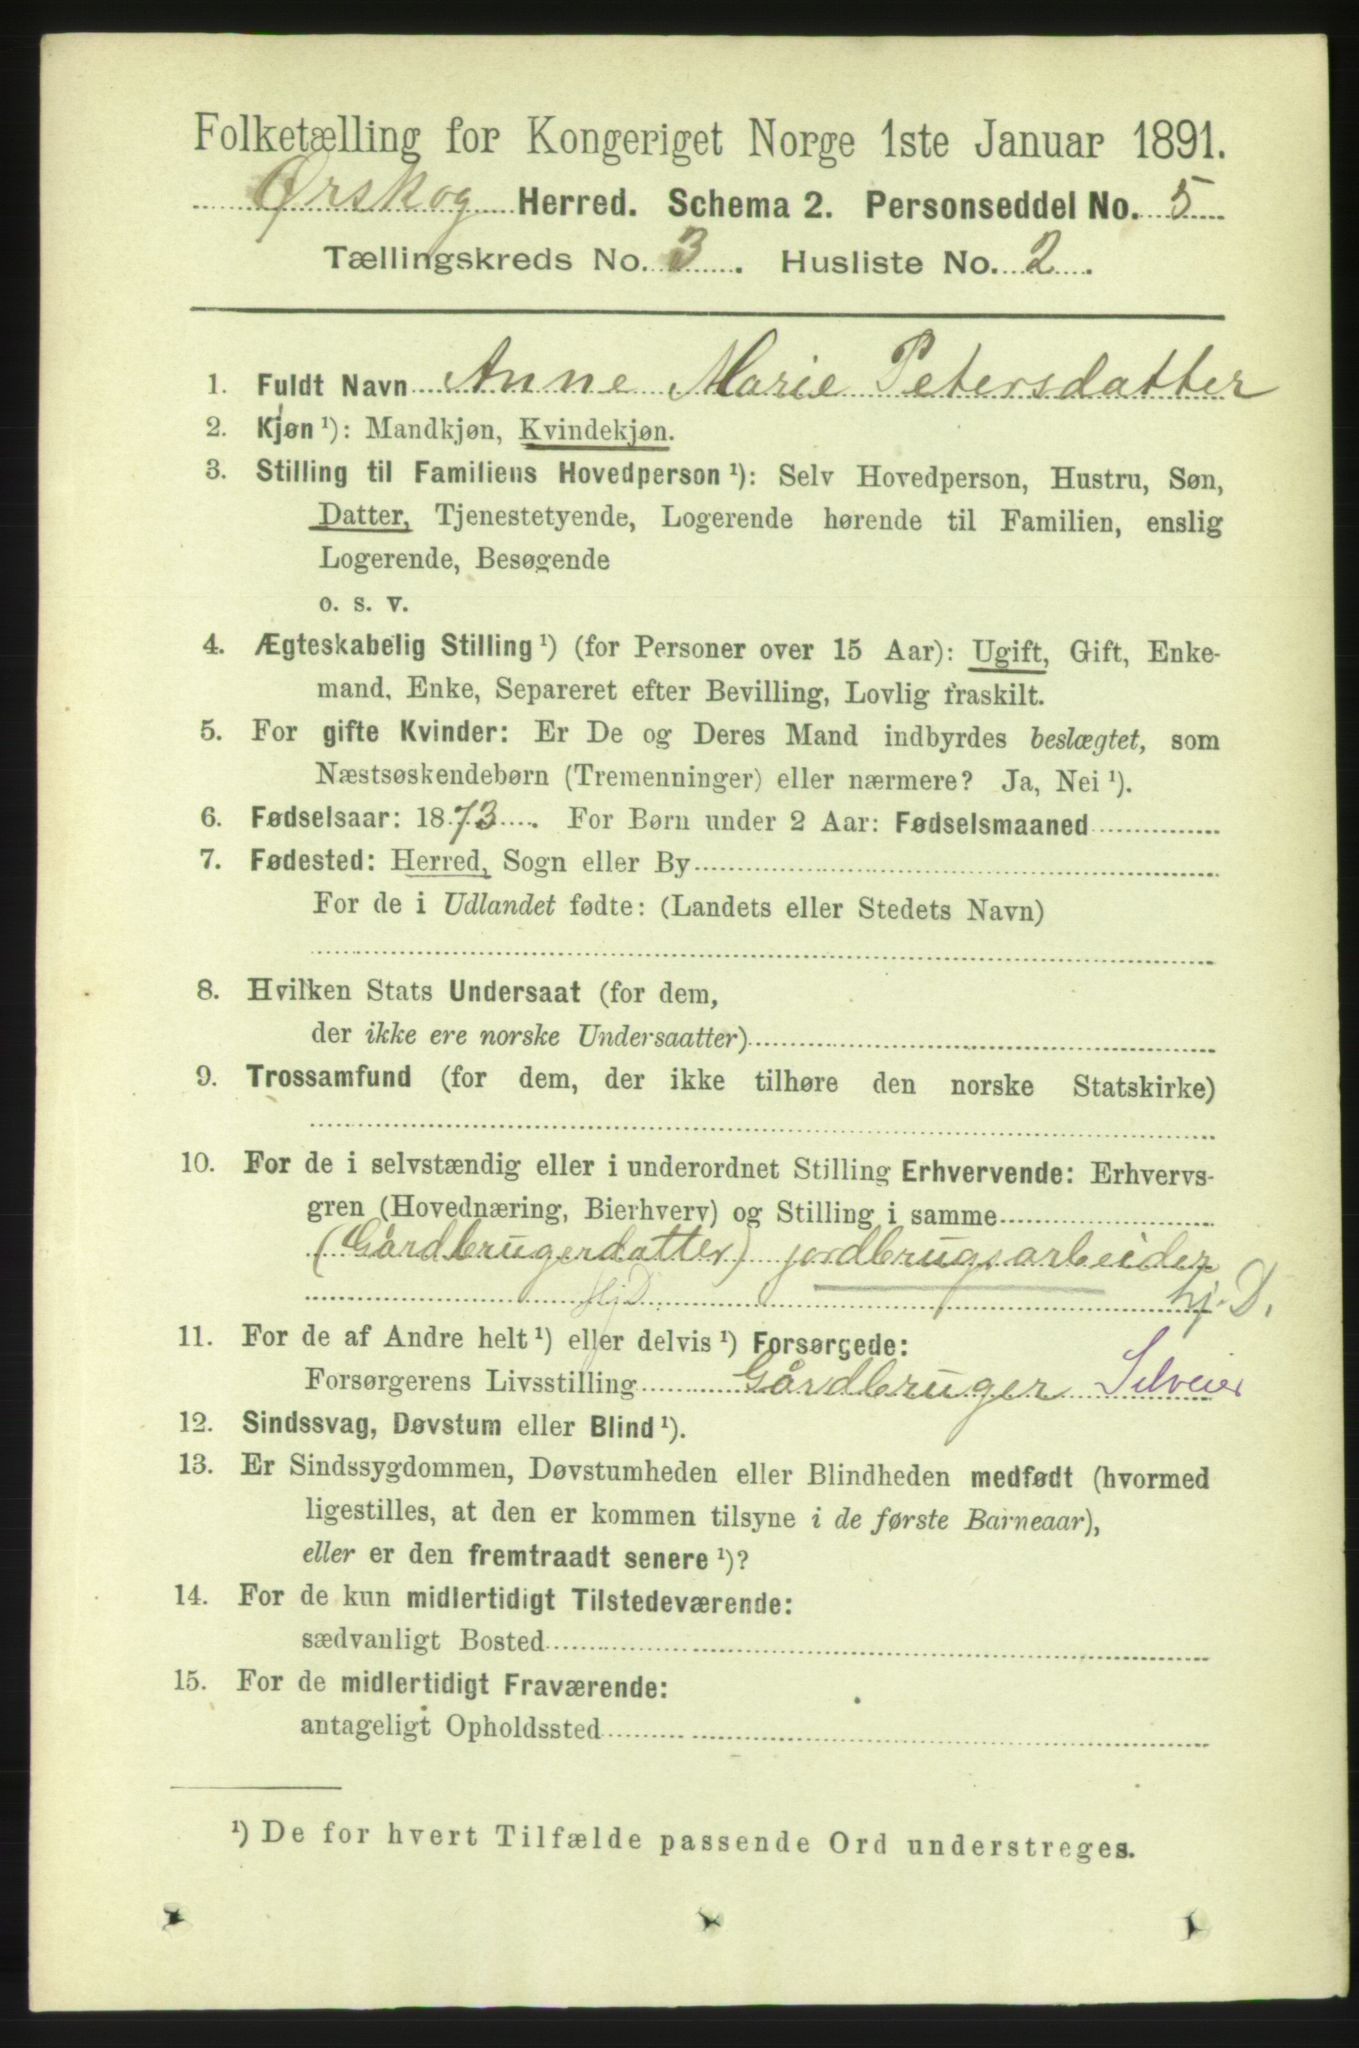 Folketælling for Kongeriget Norge 1ste Januar 1891.
Ørskog Herred. Schema 2. Personseddel No. 5
Tællingskreds No. 3. Husliste No. 2.
1. Fuldt Navn Anne Marie Petersdatter
2. Kjøn ¹): Mandkjøn, Kvindekjøn.
3. Stilling til Familiens Hovedperson ¹): Selv Hovedperson, Hustru, Søn,
Datter, Tjenestetyende, Logerende hørende til Familien, enslig
Logerende, Besøgende
o. s. v.
4. Ægteskabelig Stilling ¹) (for Personer over 15 Aar): Ugift, Gift, Enke-
mand, Enke, Separeret efter Bevilling, Lovlig fraskilt.
5. For gifte Kvinder: Er De og Deres Mand indbyrdes beslægtet, som
Næstsøskendebørn (Tremenninger) eller nærmere? Ja, Nei ¹).
6. Fødselsaar: 1873. For Børn under 2 Aar: Fødselsmaaned
7. Fødested: Herred, Sogn eller By
For de i Udlandet fødte: (Landets eller Stedets Navn)
8. Hvilken Stats Undersaat (for dem,
der ikke ere norske Undersaatter)
9. Trossamfund (for dem, der ikke tilhøre den norske Statskirke)
10. For de i selvstændig eller i underordnet Stilling Erhvervende: Erhvervs-
gren (Hovednæring, Bierhverv) og Stilling i samme
(Gårdbrugerdatter) jordbrugsarbeider
hj. D.
11. For de af Andre helt ¹) eller delvis ¹) Forsørgede:
Forsørgerens Livsstilling Gårdbruger Selveier
12. Sindssvag, Døvstum eller Blind ¹).
13. Er Sindssygdommen, Døvstumheden eller Blindheden medfødt (hvormed
ligestilles, at den er kommen tilsyne i de første Barneaar),
eller er den fremtraadt senere ¹)?
14. For de kun midlertidigt Tilstedeværende:
sædvanligt Bosted
15. For de midlertidigt Fraværende:
antageligt Opholdssted
¹) De for hvert Tilfælde passende Ord understreges.